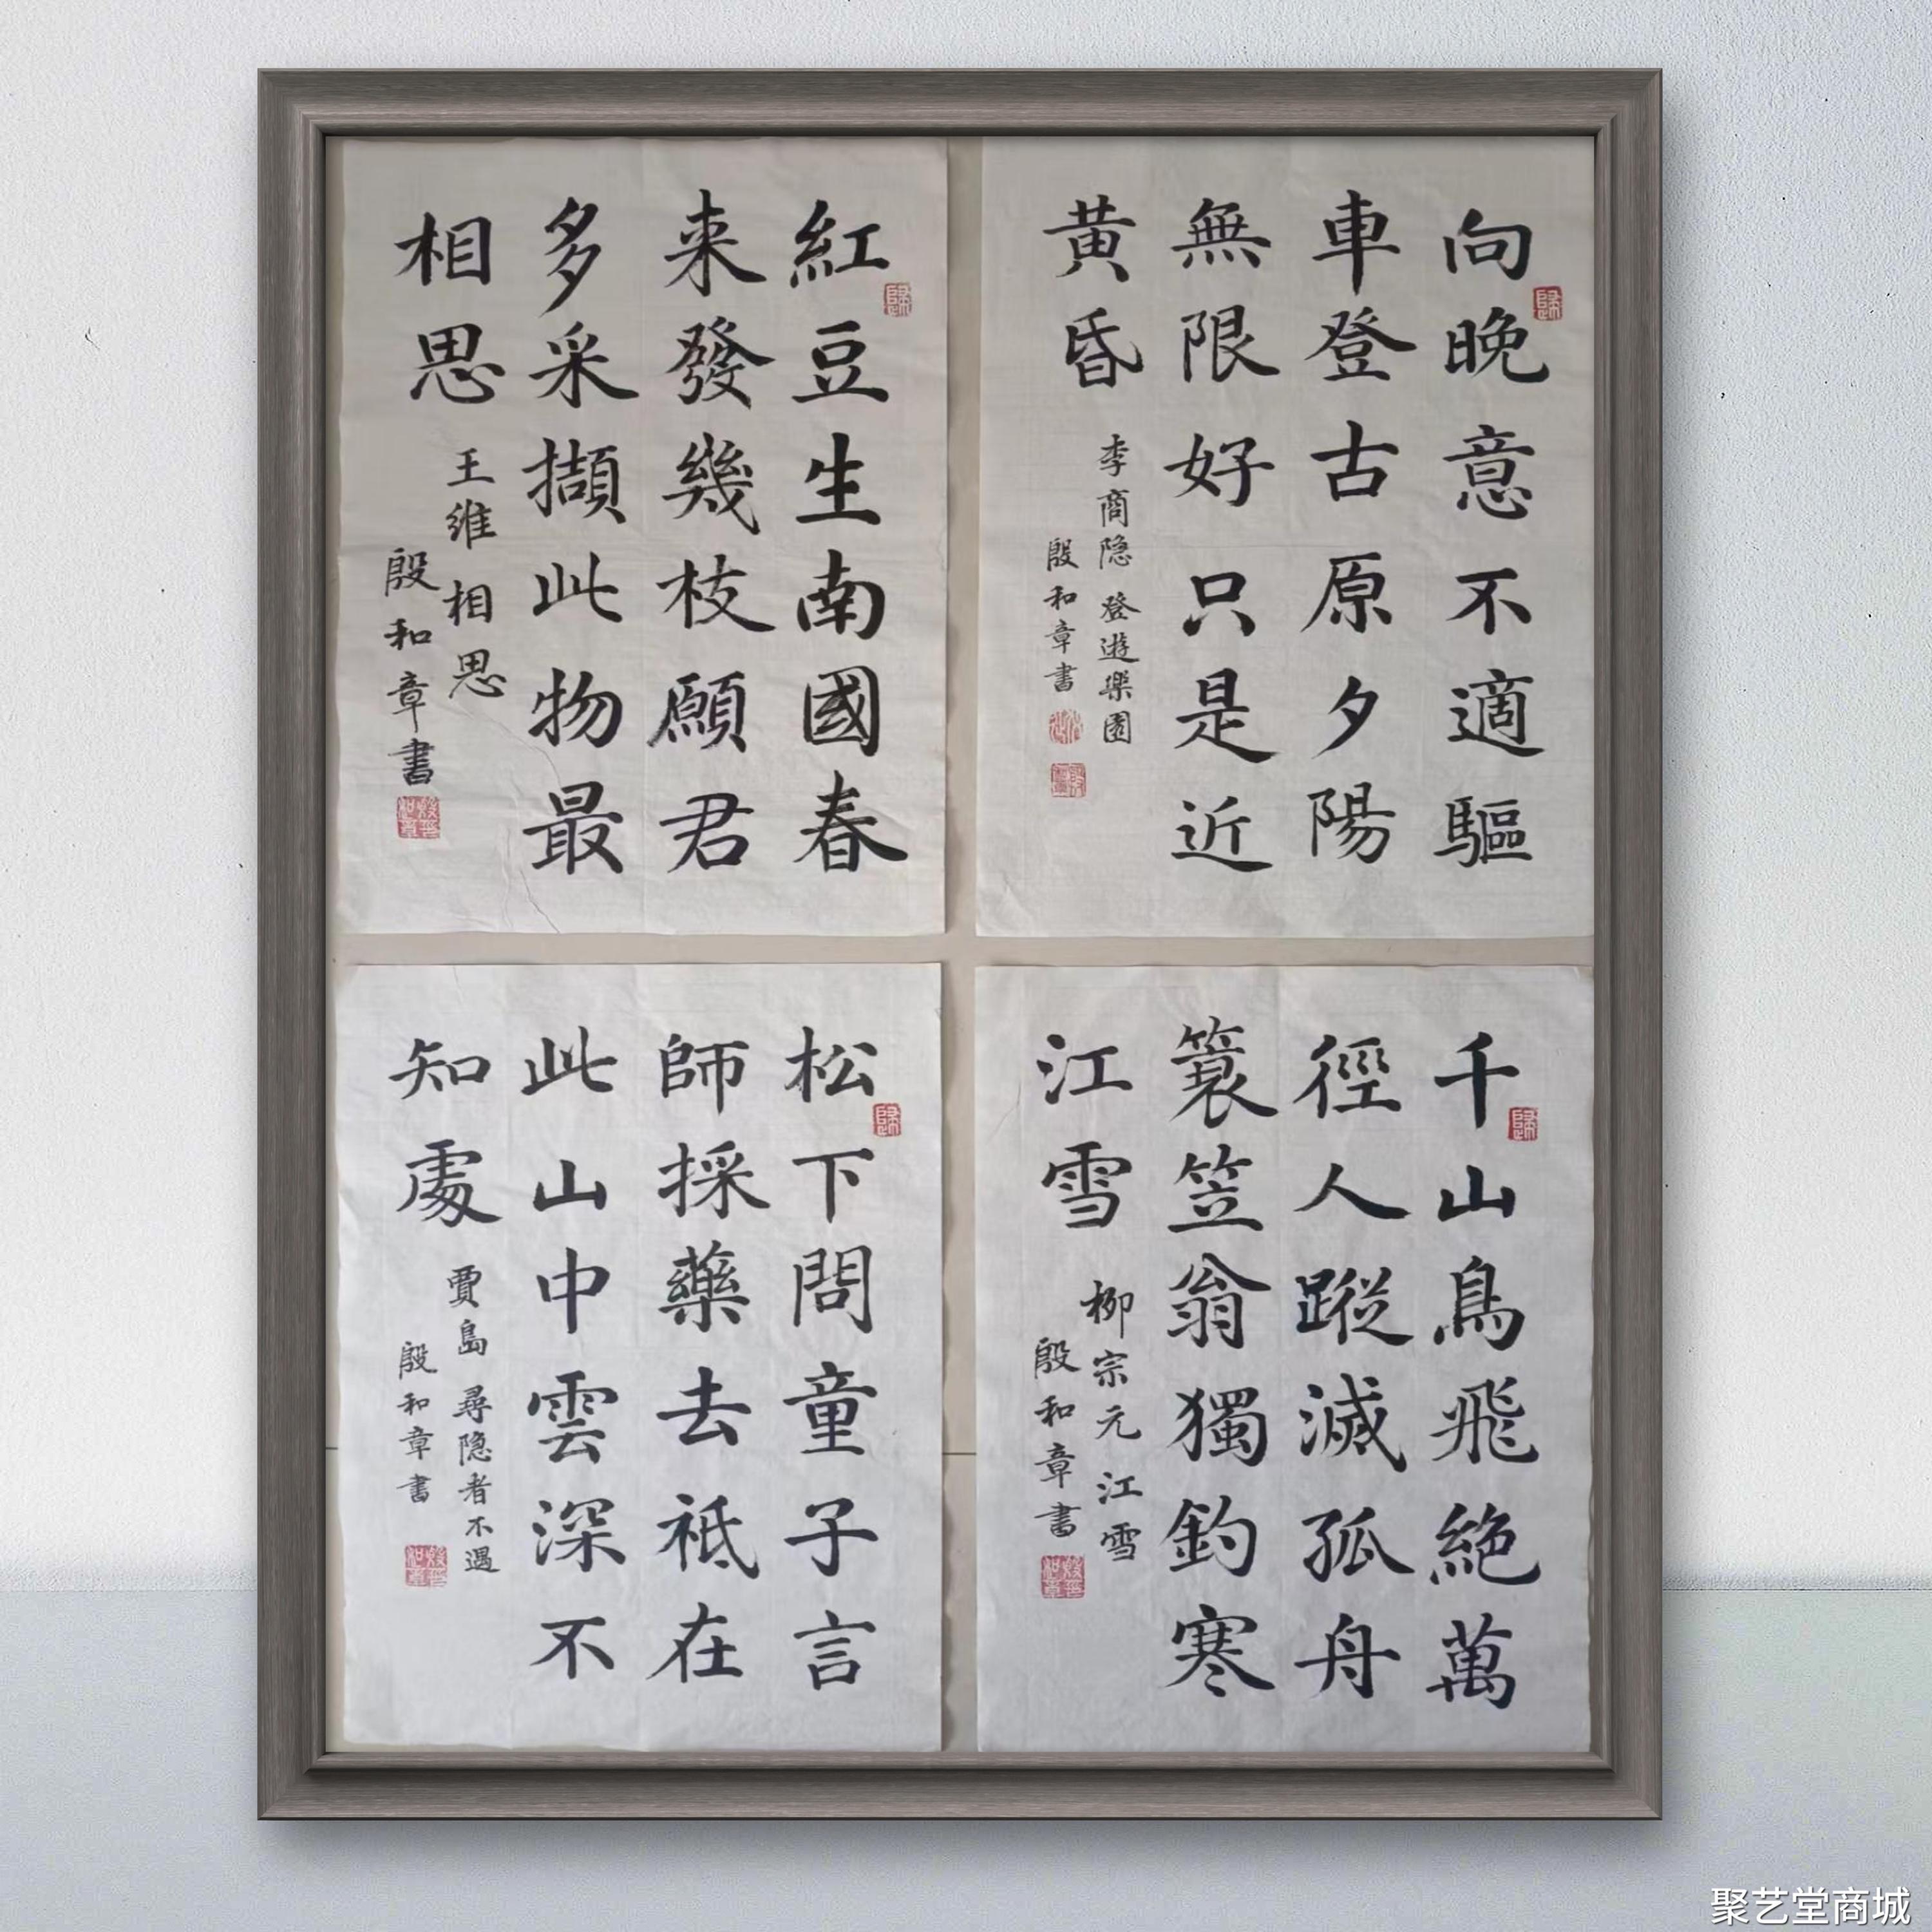 向晚意不適驅
車登古原夕陽
無限好只是近
黄昏
李商隐 登遊樂園
殷和章書
紅豆生南國春
来發幾枝願君
多采擷此物最
相思
王维 相思
殷和章書
千山鳥飛絶萬
徑人蹤滅孤舟
簑笠翁獨釣寒
江雪
柳宗元 江雪
殷和章書
松下問童子言
師採藥去祗在
此山中雲深不
知處
賈島 尋隐者不遇
殷和章書
聚艺堂商城